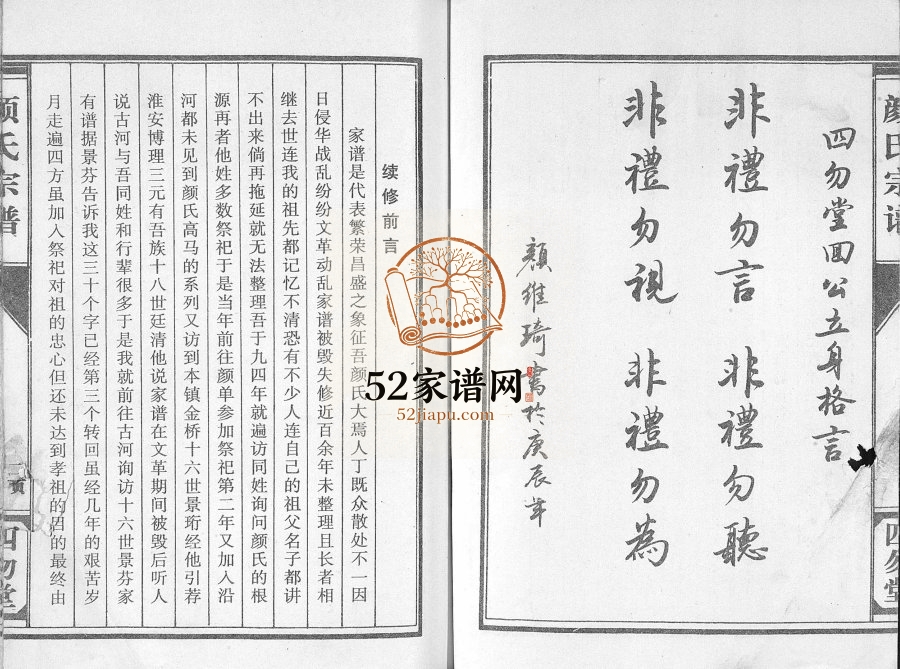 颜氏宗谱
四勿堂
四勿堂回公立身格言
非禮勿言　非禮勿聽
非禮勿視　非禮勿為
顏维琦書於庚辰年
续修前言
家谱是代表繁荣昌盛之象征吾颜氏大焉人丁既众散处不一因
日侵华战乱纷纷文革动乱家谱被毁失修近百余年未整理且长者相
继去世连我的祖先都记忆不清恐有不少人连自己的祖父名子都讲
不出来倘再拖延就无法整理吾于九四年就遍访同姓询问颜氏的根
源再者他姓多数祭祀于是当年前往颜单参加祭祀第二年又加入沿
河都未见到颜氏高马的系列又访到本镇金桥十六世景珩经他引荐
淮安博理三元有吾族十八世廷清他说家谱在文革期间被毁后听人
说古河与吾同姓和行辈很多于是我就前往古河询访十六世景芬家
有谱据景芬告诉我这三十个字已经第三个转回虽经几年的艰苦岁
月走遍四方虽加入祭祀对祖的忠心但还未达到孝祖的目的最终由
颜氏宗谱
三页
四勿堂
52家谱网
52jiapu.com